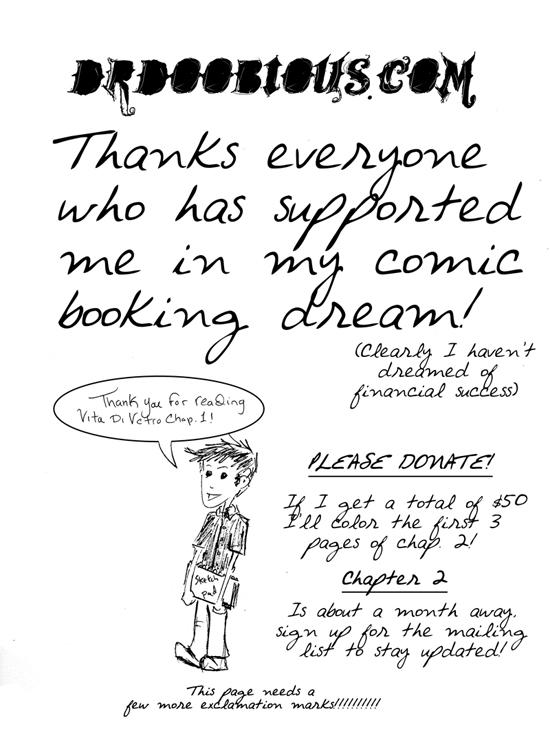 DRDOOBIOUS.COM
Thanks everyone
who has supported
me in my comic
booking dream!
(Clearly I haven't
dreamed of
financial success)
Thank you for reading
Vita Di Vetro Chap. 1!
PLEASE DONATE!
If I get a total of $50
I'll color the first 3
pages of chap. 2!
Sketch
pad
Chapter 2
Is about a month away,
sign up for the mailing
list to stay updated!
This page needs a
few more exclamation marks!!!!!!!!!!